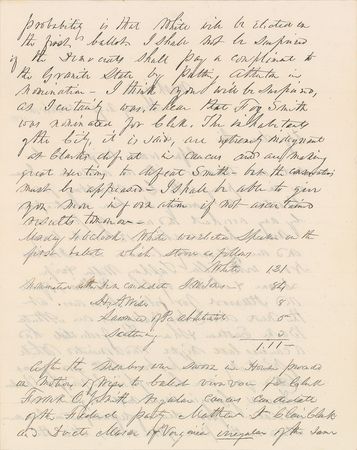 probability is that White will be elected on
the first ballot. I shall not be surprised
if the Democrats shall pay a compliment to
the Granite State by putting Atherton in
nomination - I think you will be surprised,
as I certainly was, to hear that Foy Smith
was nominated for Clerk. The inhabitants
of the City, it is said, are extremely indignant
at Clarks defeat in caucus and are making
great exertions to defeat Smith - but the
must be appeased - I shall be able to give
you more information if not ascertained
results tomorrow -
Monday 10 oclock. White was elected Speaker on the
first ballot which stood as follows
White 121
the Dem candidate 84
Wise 8
Lawrence of Pa 5
Scattering
after the Members was sworn in House proceeded
on motion of Wise to ballot viva voce for Clerk
Frank O. J. Smith regular caucus candidate
of the Federal party Matthew St Clair Clark
and Mason of Virginia irregular of the same